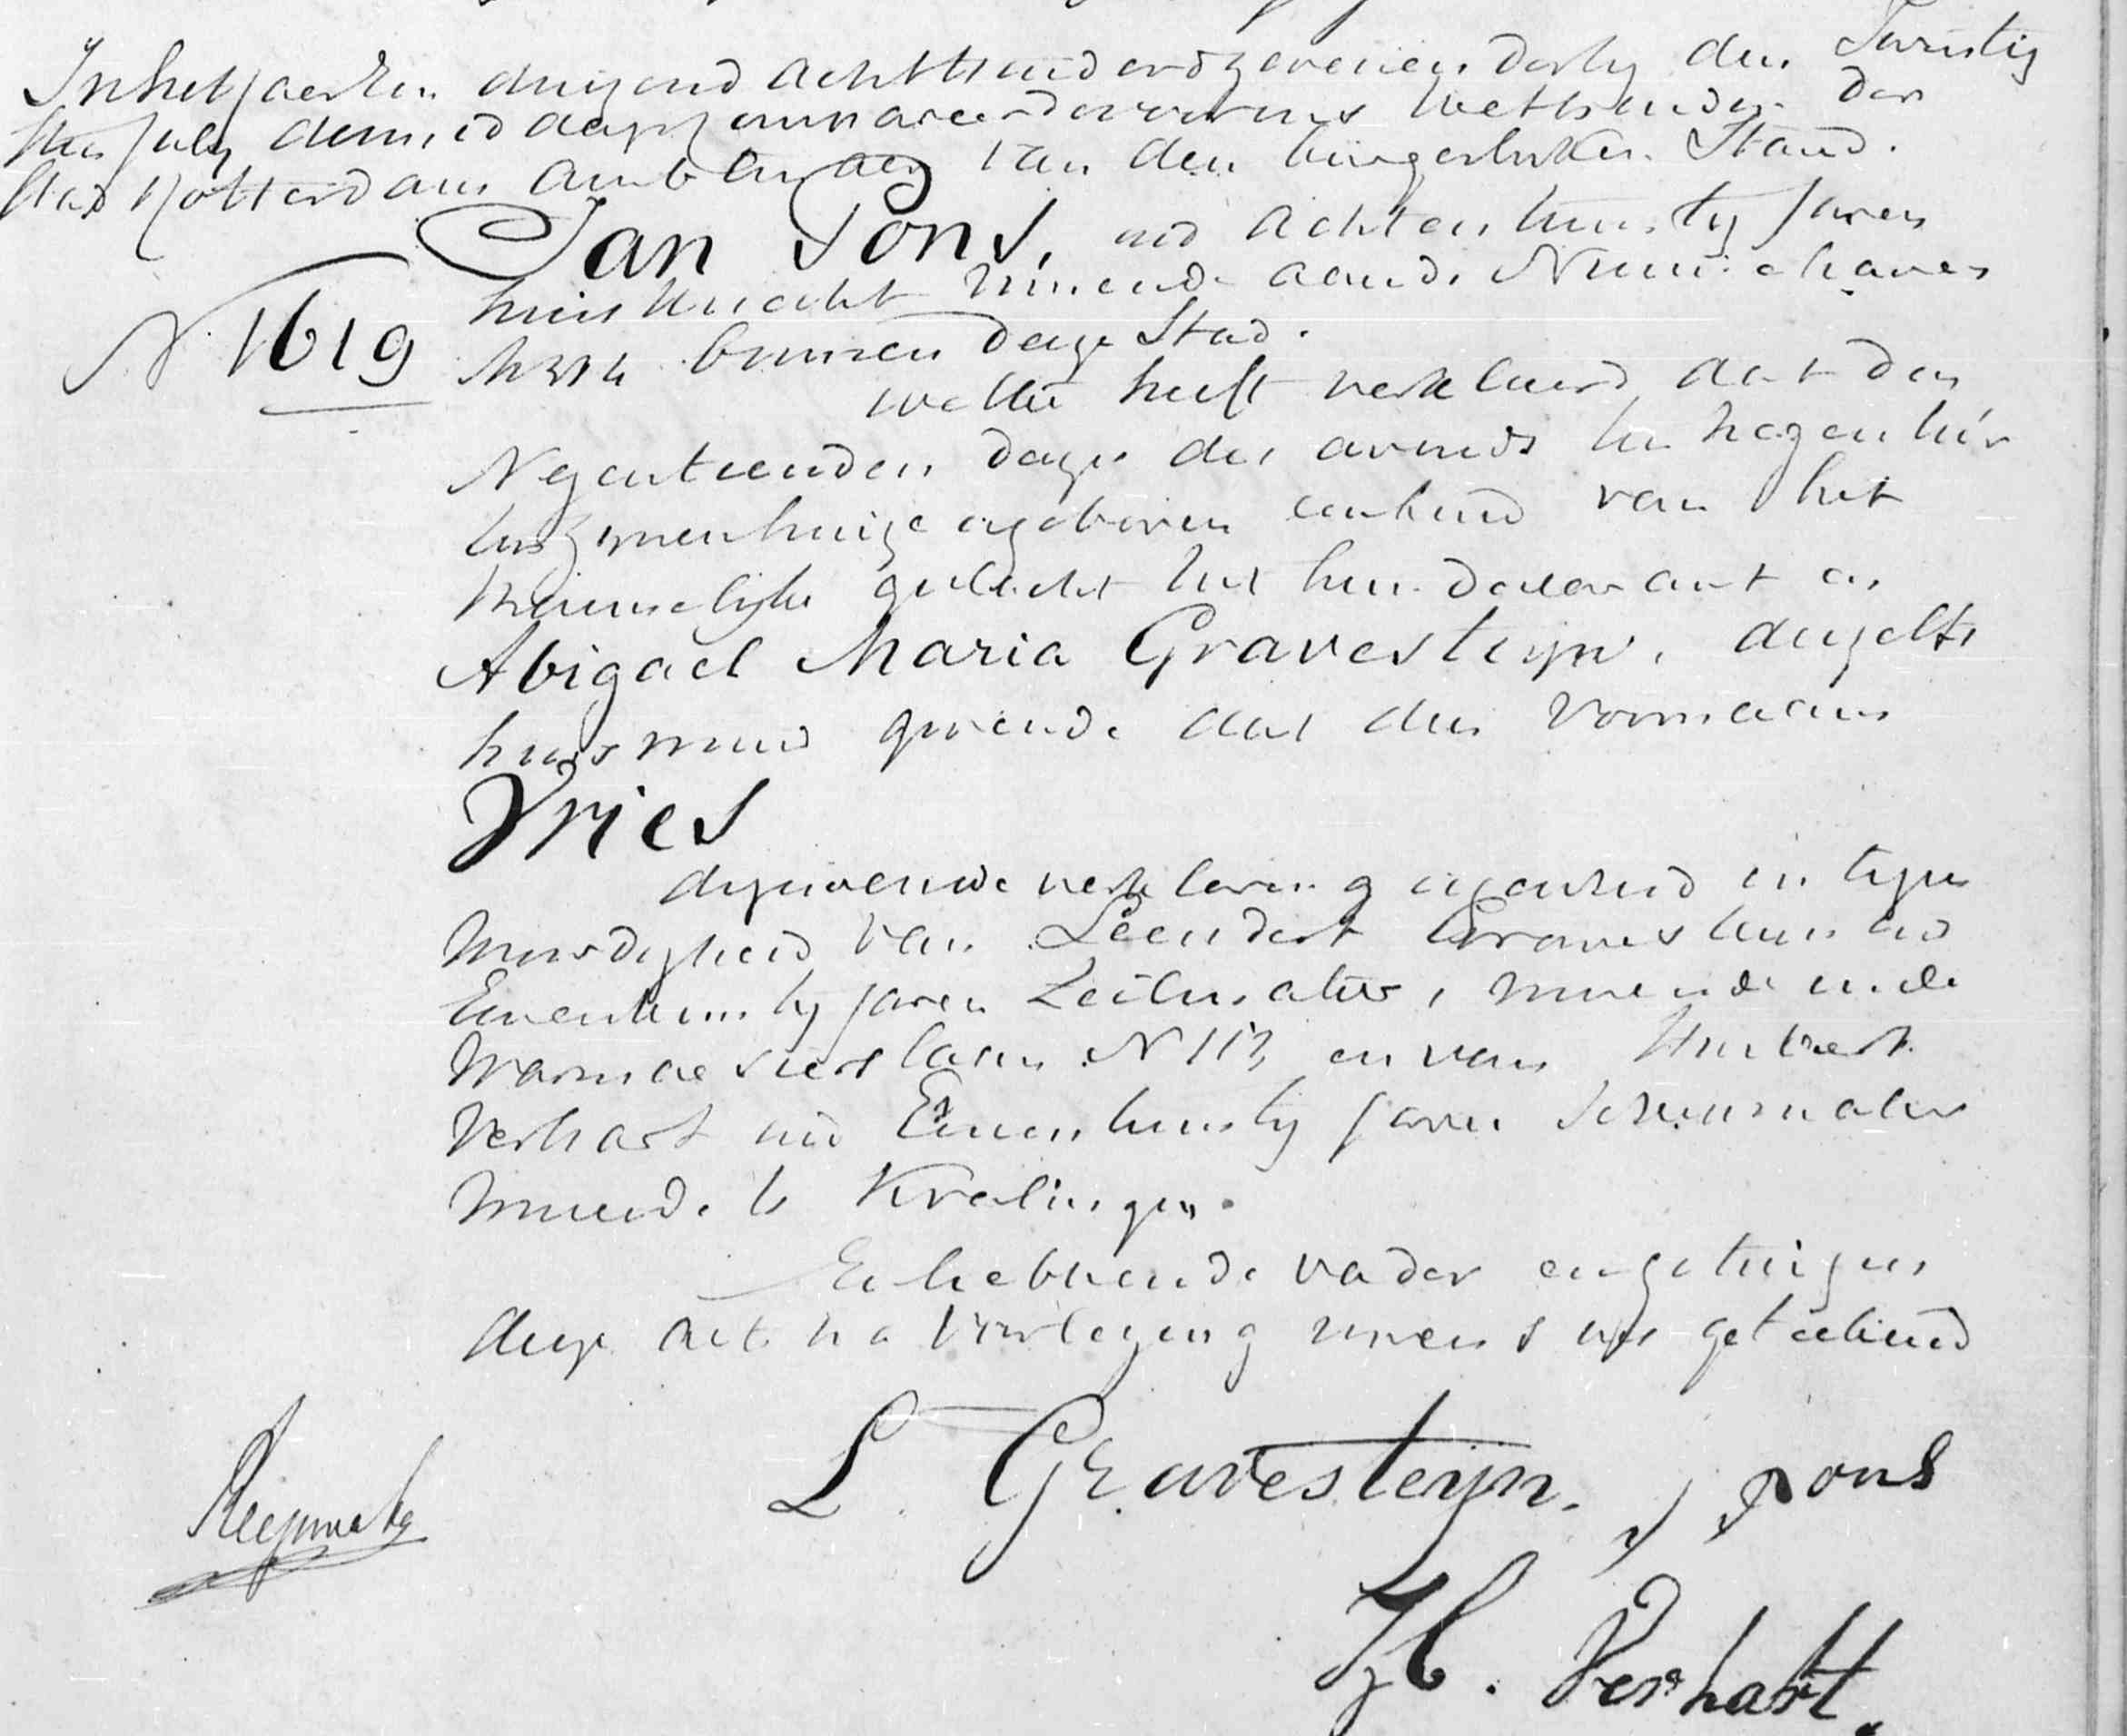 In het jaar een duizend achthonderd zevenendertig den Twintig
sten July, des middags voor ons Wethouder der
stad Rotterdam Ambtenaar van den burgerlijken Stand.
Jan Pons, oud achtentwintig jaren
huisknecht wonende aan de Nieuwehaven
N 1619
binnen deze Stad.
welke heeft verklaard dat den
Negentienden dezer des avonds ten negen uur
ten zijnen huize is geboren een kind van het
Mannelijke geslacht uit hem declarant en
Abigael Maria Gravesteijn, deszelfs
huisvrouw gevende dat den voornaam
Vries
zijnde deze verklaring geschied in tegen
woordigheid van Leendert Gravesteijn oud
Eenentwintig jaren Zeilmaker, wonende in de
Warmoesierslaan N 113 en van Huibert
Verhart oud Eenentwintig jaren Schuitmaker
wonende te Kralingen.
En hebbende vader en getuigen
deze acte na voorlezing nevens ons geteekend
L Gravesteijn. J Pons
H. Verhart.